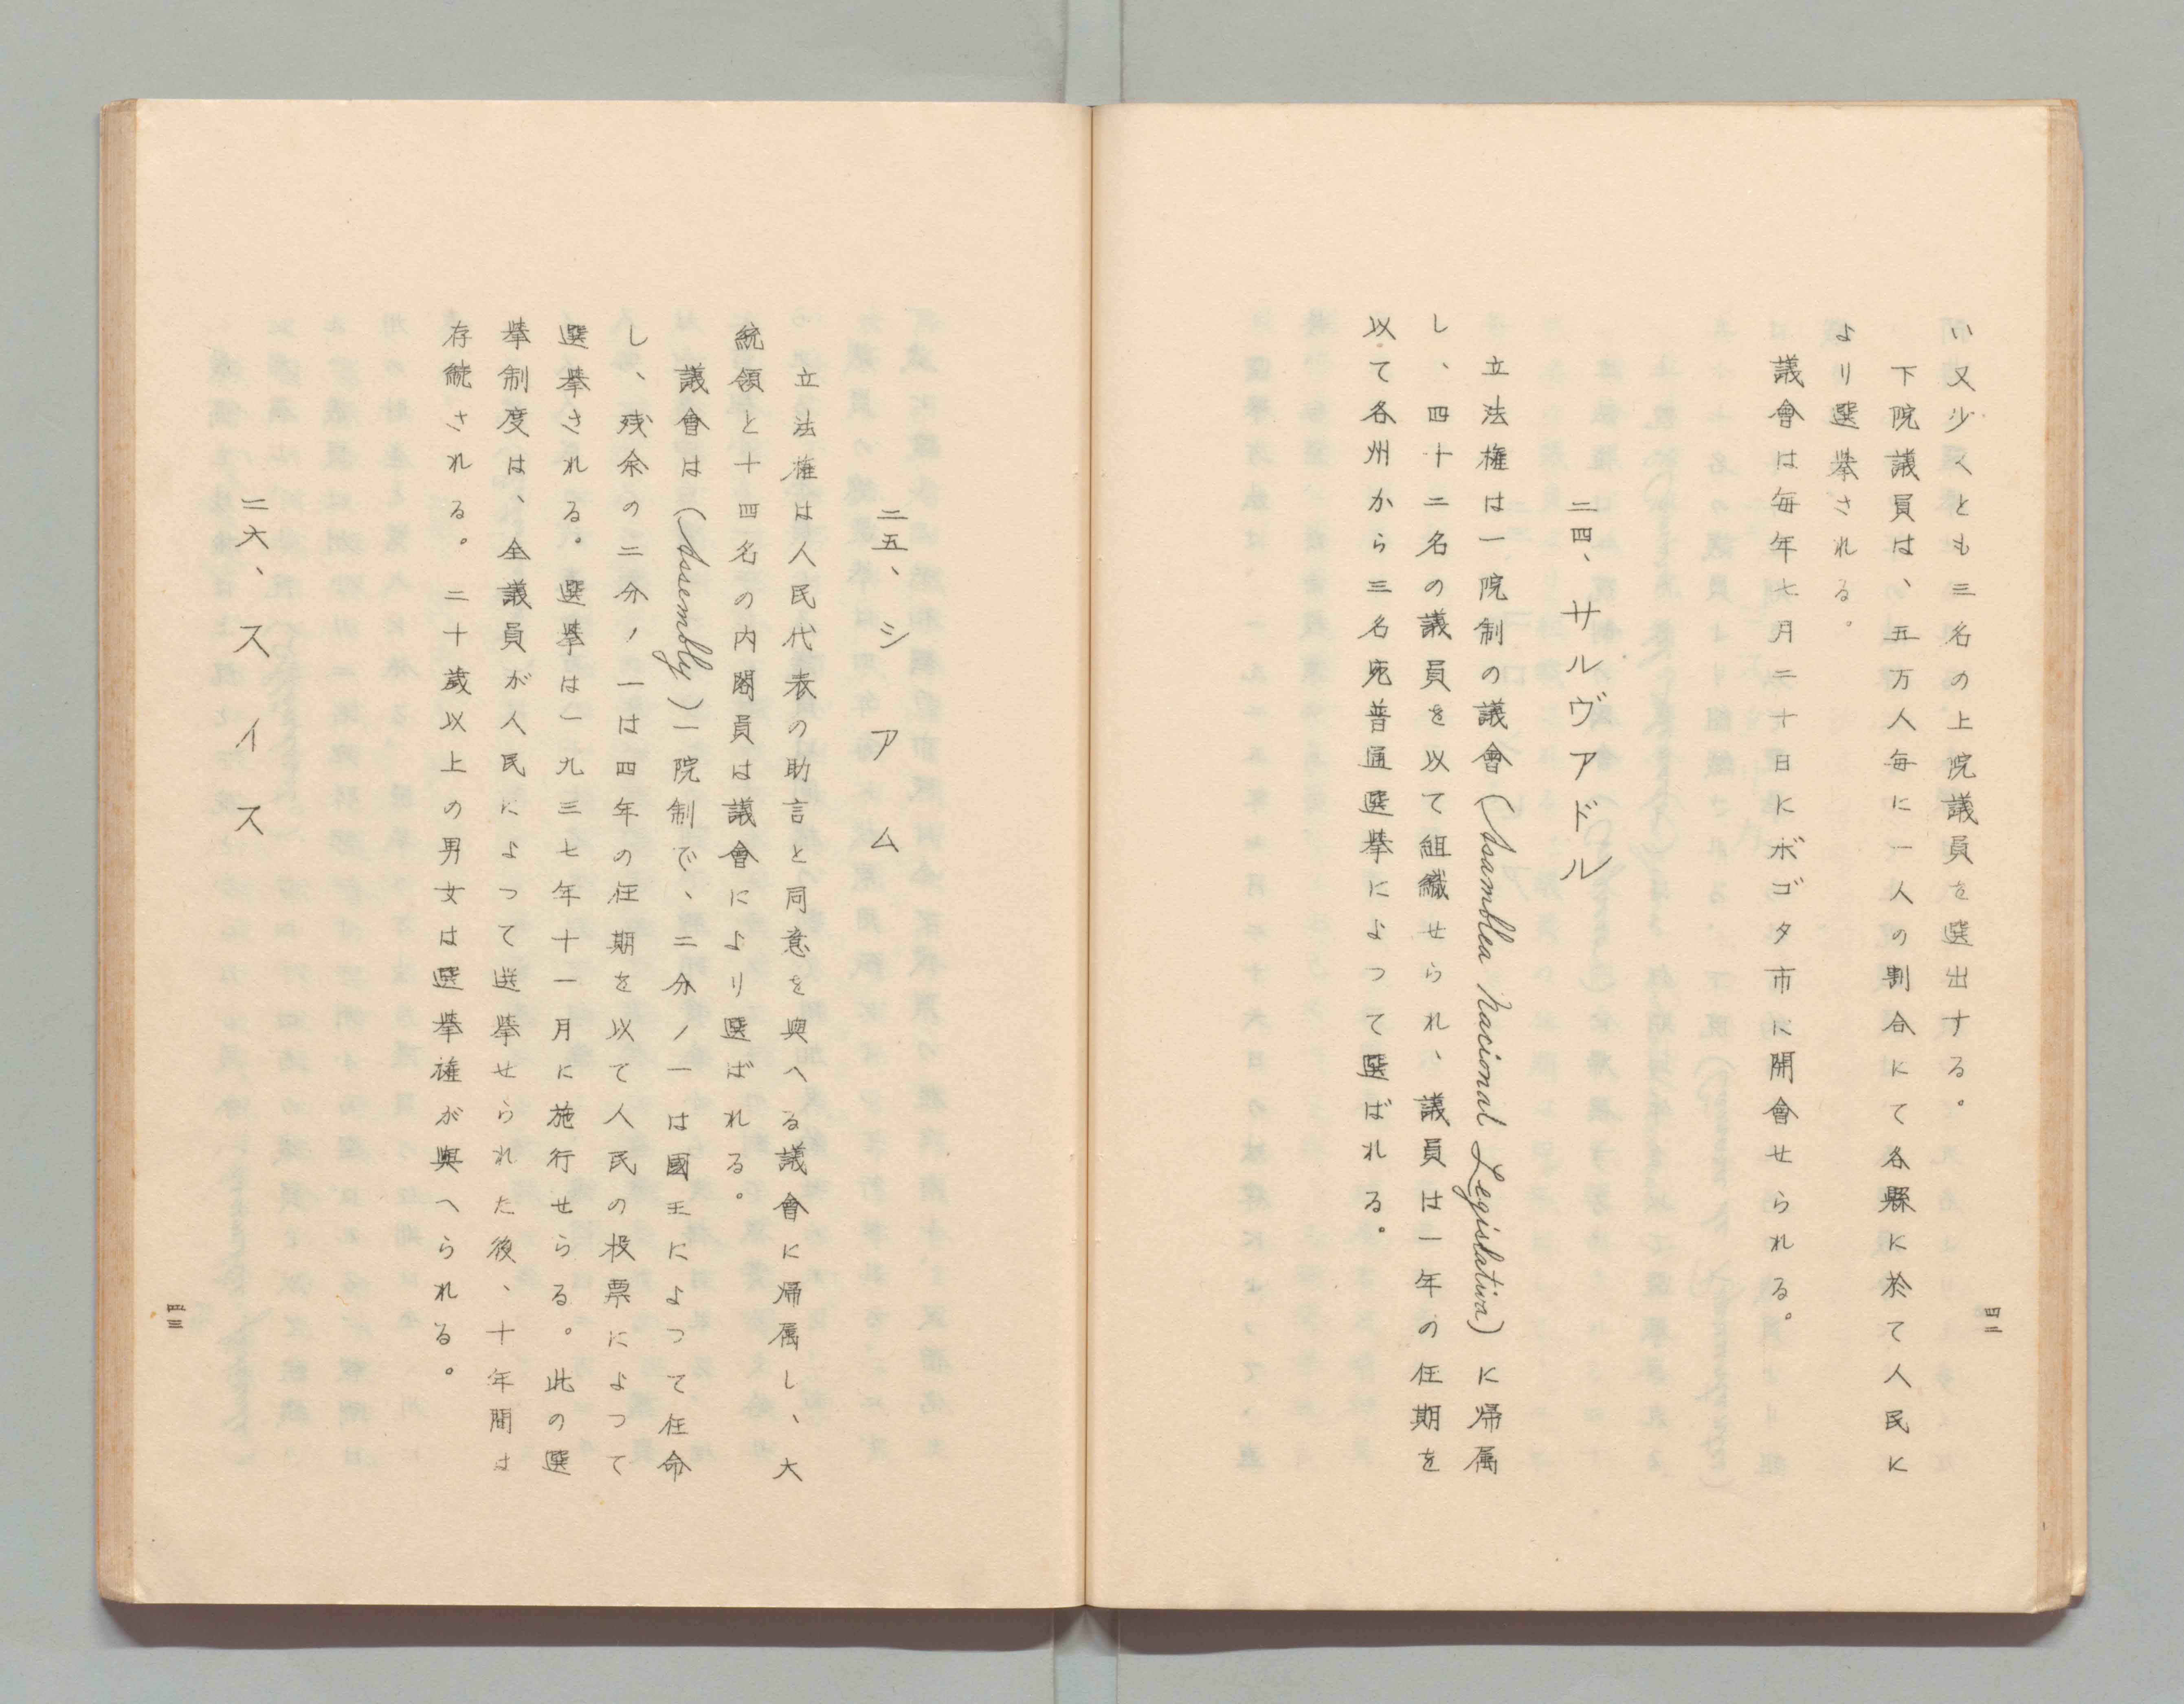 い又少くとも三名の上院議員を選出する。
下院議員は、五万人毎に一人の割合にて各縣に於て人民に
より選挙される。
議會は毎年七月二十日にボゴタ市に開會せられる。
二四、サルヴアドル
立法権は一院制の議會(Asamblea Nacional Legislativa)に帰属
し、四十二名の議員を以て組織せられ、議員は一年の任期を
以て各州から三名宛普通選挙によつて選ばれる。
四二
二五、シアム
立法権は人民代表の助言と同意を與へる議會に帰属し、大
統領と十四名の内閣員は議會により選ばれる。
議會は(Assembly)一院制で、二分ノ一は國王によつて任命
し、残余の二分ノ一は四年の任期を以て人民の投票によつて
選挙される。選挙は一九三七年十一月に施行せらる。此の選
挙制度は、全議員が人民によつて選挙せられた後、十年間は
存続される。二十歳以上の男女は選挙権が與へられる。
二六、スイス
四三